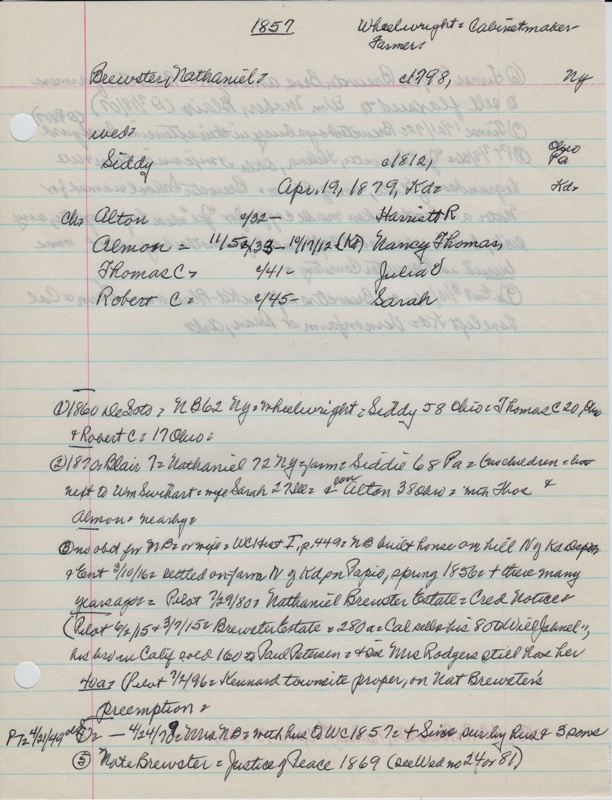 1857
Wheelwright = Cabinetmaker
Farmers
Brewster, Nathaniel = c1798, Ny
wed =
Siddy c1812, Ohio Pa
Apr. 19, 1879, Kd = Kd=
ch = Alton c/32 — Harriett R
Almon = 11/5 c/33 - 10/17/12 (Kd) Nancy Thomas,
Thomas C = c/41 - Julia
Robert C = c/45 - Sarah
① 1860 DeSoto = NB 62 Ny = wheelwright = Siddy 58 Ohio = Thomas C 20, Ohio
+ Robert C = 17 Ohio =
② 1870 Blair 7 = Nathaniel 72 Ny = farm = Siddie 68 Pa =
next to Wm = wife Sarah 27 = Alton 38 Ohio = with Thos &
Almon = nearby =
③ no obit for NB = or wife = WC Hist I, p. 449 = NB built house on hill N of Kd Depot
+ Ent 3/10/16 = settled on farm N of Kd, on Papio, spring 1856 = + there many
years ago = Pilot 7/29/80 = Nathaniel Brewster Estate = Cred Notice =
(Pilot 6/2/15 + 3/7/15 = Brewster Estate = 280a = Cal sells his 80 to Will Jahnel =,
his bro in Calif sold 160 to Paul Petersen = + sis Mrs Rodgers still has her
40a = (Pilot 7/4/96 = Kennard townsite proper, on Nat Brewster's
preemption =
PT= 4/21/49 ④ = — 4/24/79 = Mrs NB = with hus to WC 1857 = + Since sur by hus & 3 sons
⑤ Nate Brewster = Justice of Peace 1869 (see Wed no 24 or 81)